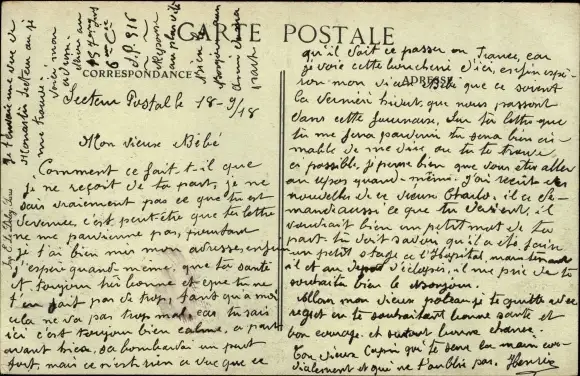 CARTE POSTALE
CORRESPONDANCE
ADRESSE
Secteur Postal le 18-9/18
Mon vieux Bébé
Comment ce fait-t-il que
je ne reçoit de ta part, je ne
sais vraiement pas ce que tu est
devenue, c'est peut être que ta lettre
ne me parvienne pas, pourtant
je t'ai bien mis mon adresse, enfin
j'espère quand-même, que ta santé
et toujour très bonne et que tu ne
t'en fait pas de trop, tant qu'a moi
cela ne va pas trop mal, car tu sais
ici c'est toujour bien calme, a part
avant hier, sa bombardai un peut
fort, mais ce n'est rien a vue que ce
qu'il doit ce passer en France, car
je vois cette boucherie d'ici, enfin espé-
rion mon vieux Bébé que ce seront
la dernier hivert que nous passont
dans cette fournaise. Sur ta lettre que
tu me fera parvenir tu sera bien ai-
mable de me dire ou tu te trouve
ci possible, je pense bien que vous êtes aller
au repos quand-même. j'ai reçut des
nouvelles de ce vieux Charlo, il ce de-
mande aussi ce que tu devient, il
voudrait bien un petit mot de ta
part tu doit savoir qu'il a été faire
un petit stage a l'Hopital, maintenant
il et au depot d'éclopés, il me prie de te
souhaité bien le bonjour.
Allon mon vieux poteau je te quitte avec
regret en te souhaitant bonne santé et
bon courage et surtout bonne chance.
Ton vieux Copin qui te serre la main cor-
dialement et que ne t'oublis pas. Henri
Je t'envoie une vue de
Monastir secteur ou je
me trouve.
Voici mon
adresse
6e Cie
S.P. 516
Réponse
au plus vite
Bien le